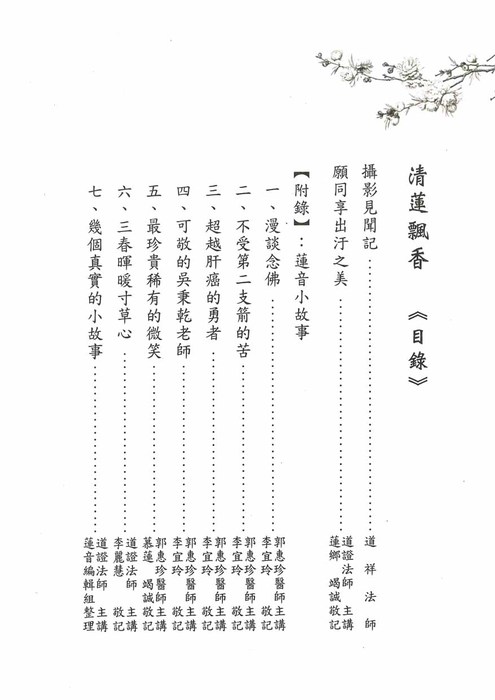 清蓮飄香 《目錄》
攝影見聞記……………………………道祥法師
願同享出汙之美………………………道證法師 主講
蓮鄉 竭誠敬記
【附錄】：蓮音小故事
一、漫談念佛…………………………郭惠珍醫師主講
李宜玲 敬記
二、不受第二支箭的苦………………郭惠珍醫師主講
李宜玲 敬記
三、超越肝癌的勇者…………………郭惠珍醫師主講
李宜玲 敬記
四、可敬的吳秉乾老師………………郭惠珍醫師主講
李宜玲 敬記
五、最珍貴稀有的微笑………………郭惠珍醫師主講
慕蓮 竭誠敬記
六、三春暉暖寸草心…………………道證法師 主講
李麗慧 敬記
七、幾個真實的小故事………………道證法師 主講
蓮音編輯組整理